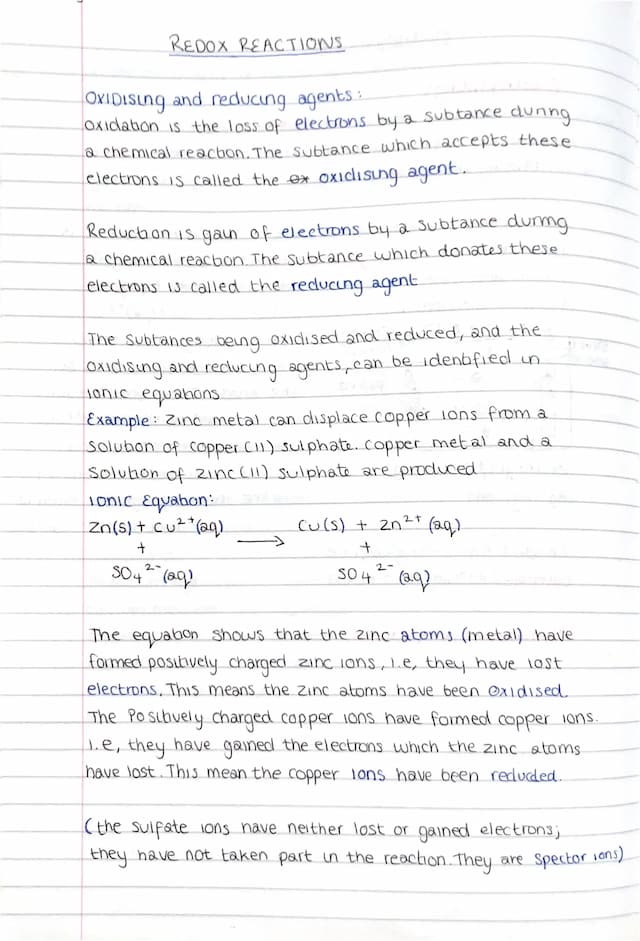 REDOX REACTIONS
Oxidising and reducing agents:
Oxidation is the loss of electrons by a subtance during
a chemical reaction. The subtance which accepts these
electrons is called the ex oxidising agent.
Reduction is gain of electrons by a subtance during
a chemical reaction. The subtance which donates these
electrons is called the reducing agent
The subtances being oxidised and reduced, and the
oxidising and reducing agents, can be identified in
ionic equations
Example: Zinc metal can displace copper ions from a
solution of copper (II) sulphate. Copper metal and a
solution of zinc (II) sulphate are produced
Ionic Equation:
Zn(s) + Cu²⁺(aq) ⟶ Cu(s) + Zn²⁺(aq)
+ +
SO₄²⁻(aq) SO₄²⁻(aq)
The equation shows that the zinc atoms (metal) have
formed positively charged zinc ions, i.e, they have lost
electrons. This means the zinc atoms have been oxidised
The positively charged copper ions have formed copper ions.
i.e, they have gained the electrons which the zinc atoms
have lost. This mean the copper ions have been reduded.
(the sulfate ions have neither lost or gained electrons;
they have not taken part in the reaction. They are spector ions)